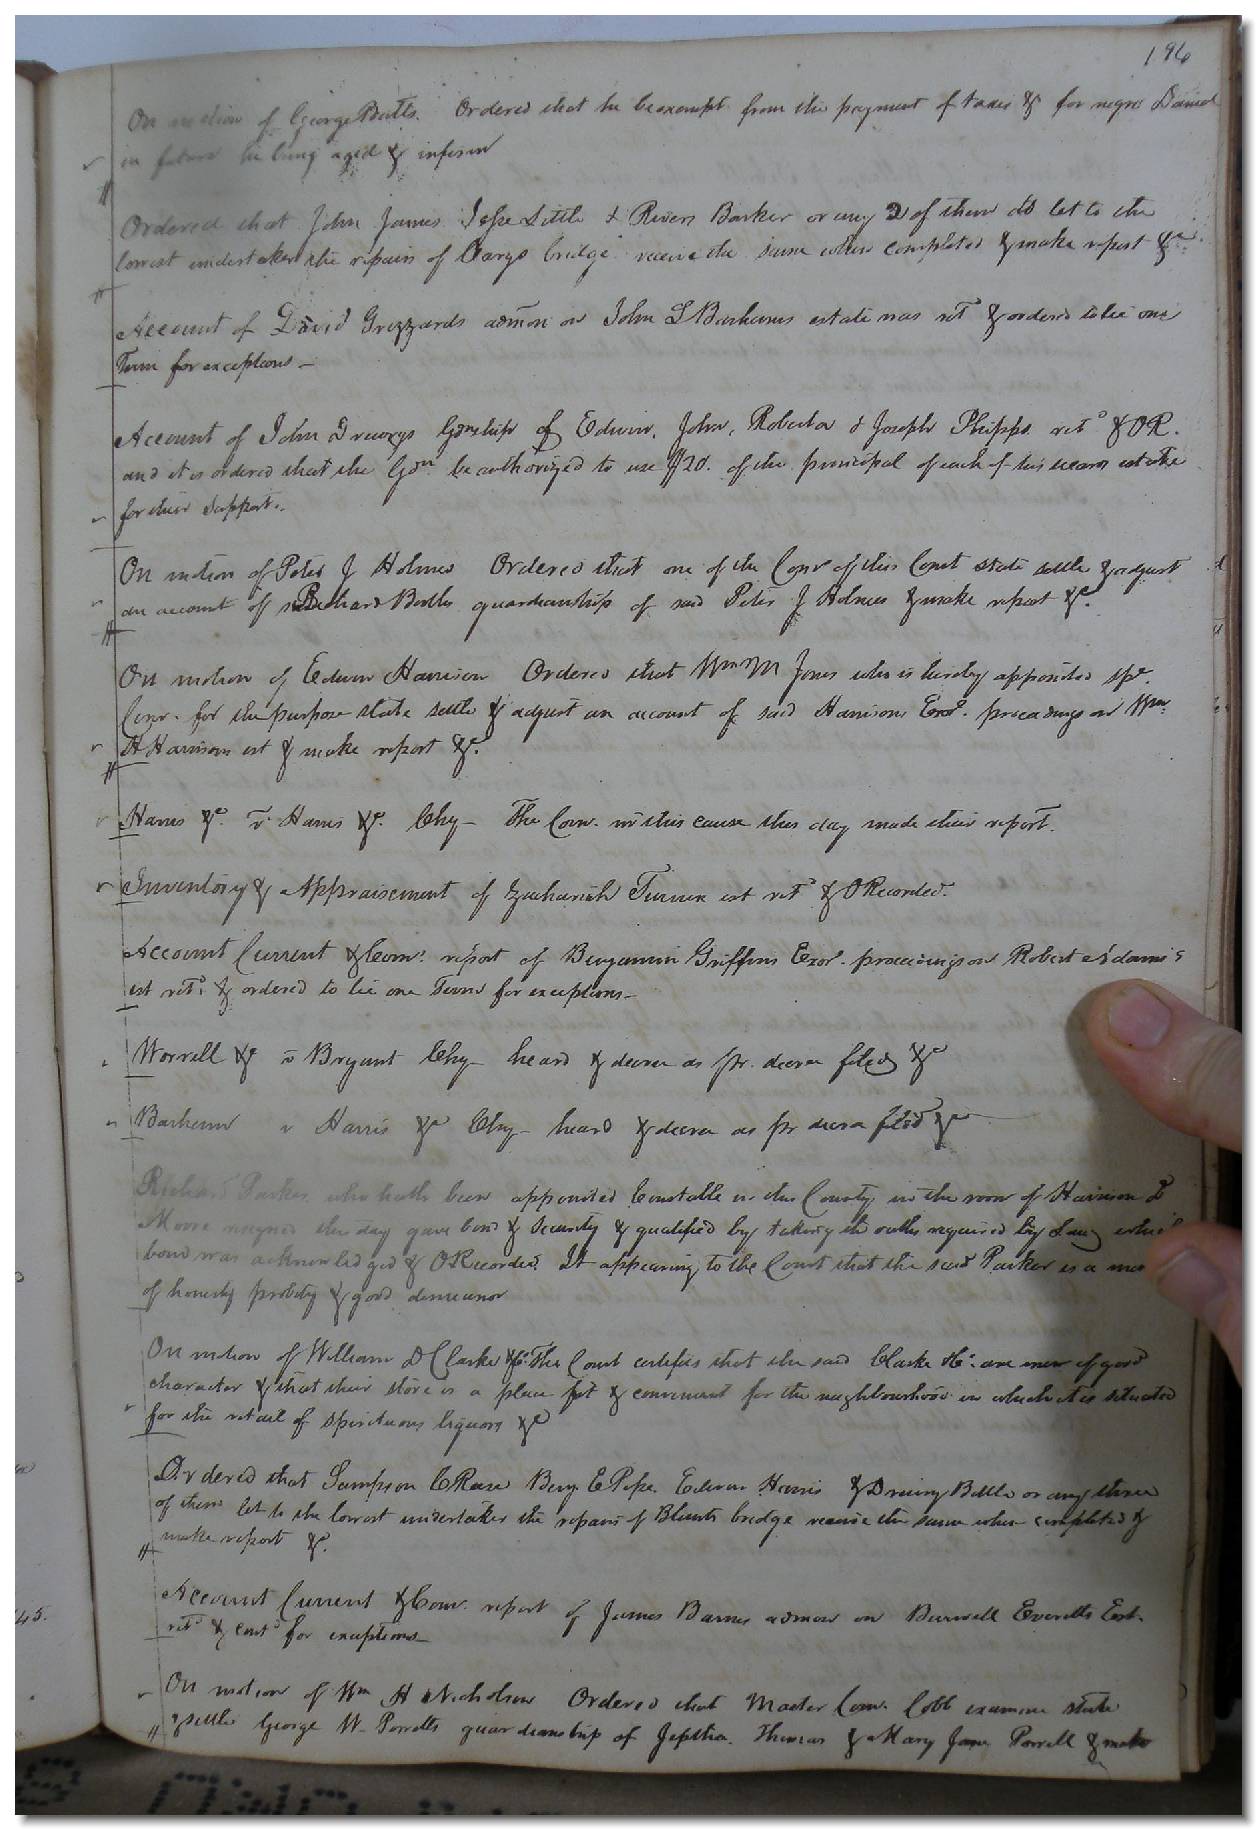 196
On motion of George Butts. Ordered that he be exempt from the payment of taxes &c for negro Daniel
in future he being aged & infirm
Ordered that John James Jesse Little & Rivers Barker or any 2 of them do let to the
lowest undertaker the repairs of Carys bridge receive the same when completed & make report &c.
Account of David Grizzards admon on John L Barhams estate was retd & ordered to lie one
Term for exceptions —
Account of John Drewrys Gdnship of Edwin, John, Roberta & Joseph Phipps retd & OR.
and it is ordered that the Gdn be authorized to use $20. of the principal of each of his wards estate
for their support.
On motion of Peter J Holmes Ordered that one of the Comr of this Court state settle & adjust
an account of Richard Butts guardianship of said Peter J Holmes & make report &c.
On motion of Edwin Harrison Ordered that Wm M Jones who is hereby appointed spe.
Comr. for the purpose state settle & adjust an account of said Harrisons Exor. proceedings on Wm.
H Harrisons est & make report &c.
Harris &c. v Harris &c. Chy — The Comr. in this cause this day made their report.
Inventory & Appraisement of Zachariah Turner est retd & ORecorded.
Account Current & Comr. report of Benjamin Griffins Exor. proceedings on Robert Adams's
est retd. & ordered to lie one Term for exceptions —
Worrell &c v Bryant Chy — heard & decree as pr. decree filed &c
Barham v Harris &c Chy — heard & decree as pr decree filed &c
Richard Parker who hath been appointed Constable in this County in the room of Harrison D
Moore resigned this day gave bond & security & qualified by taking the oaths required by Law which
bond was acknowledged & ORecorded. It appearing to the Court that the said Parker is a man
of honesty probity & good demeanor
On motion of William D Clarke &Co. The Court certifies that the said Clarke &Co. are men of good
character & that their store is a place fit & convenient for the neighbourhood in which it is situated
for the retail of spirituous liquors &c
Ordered that Sampson C Reese Benj. E Pope Edwin Harris & Drewry Bittle or any three
of them let to the lowest undertaker the repairs of Blunts bridge receive the same when completed &
make report &c.
Account Current & Comr. report of James Barnes admon on Burwell Everetts Est.
retd & contd for exceptions —
On motion of Wm H Nicholson Ordered that Master Com. Cobb examine state
& settle George W. Porrells guardianship of Jeptha. Thomas & Mary Jane Porrell & make
45.